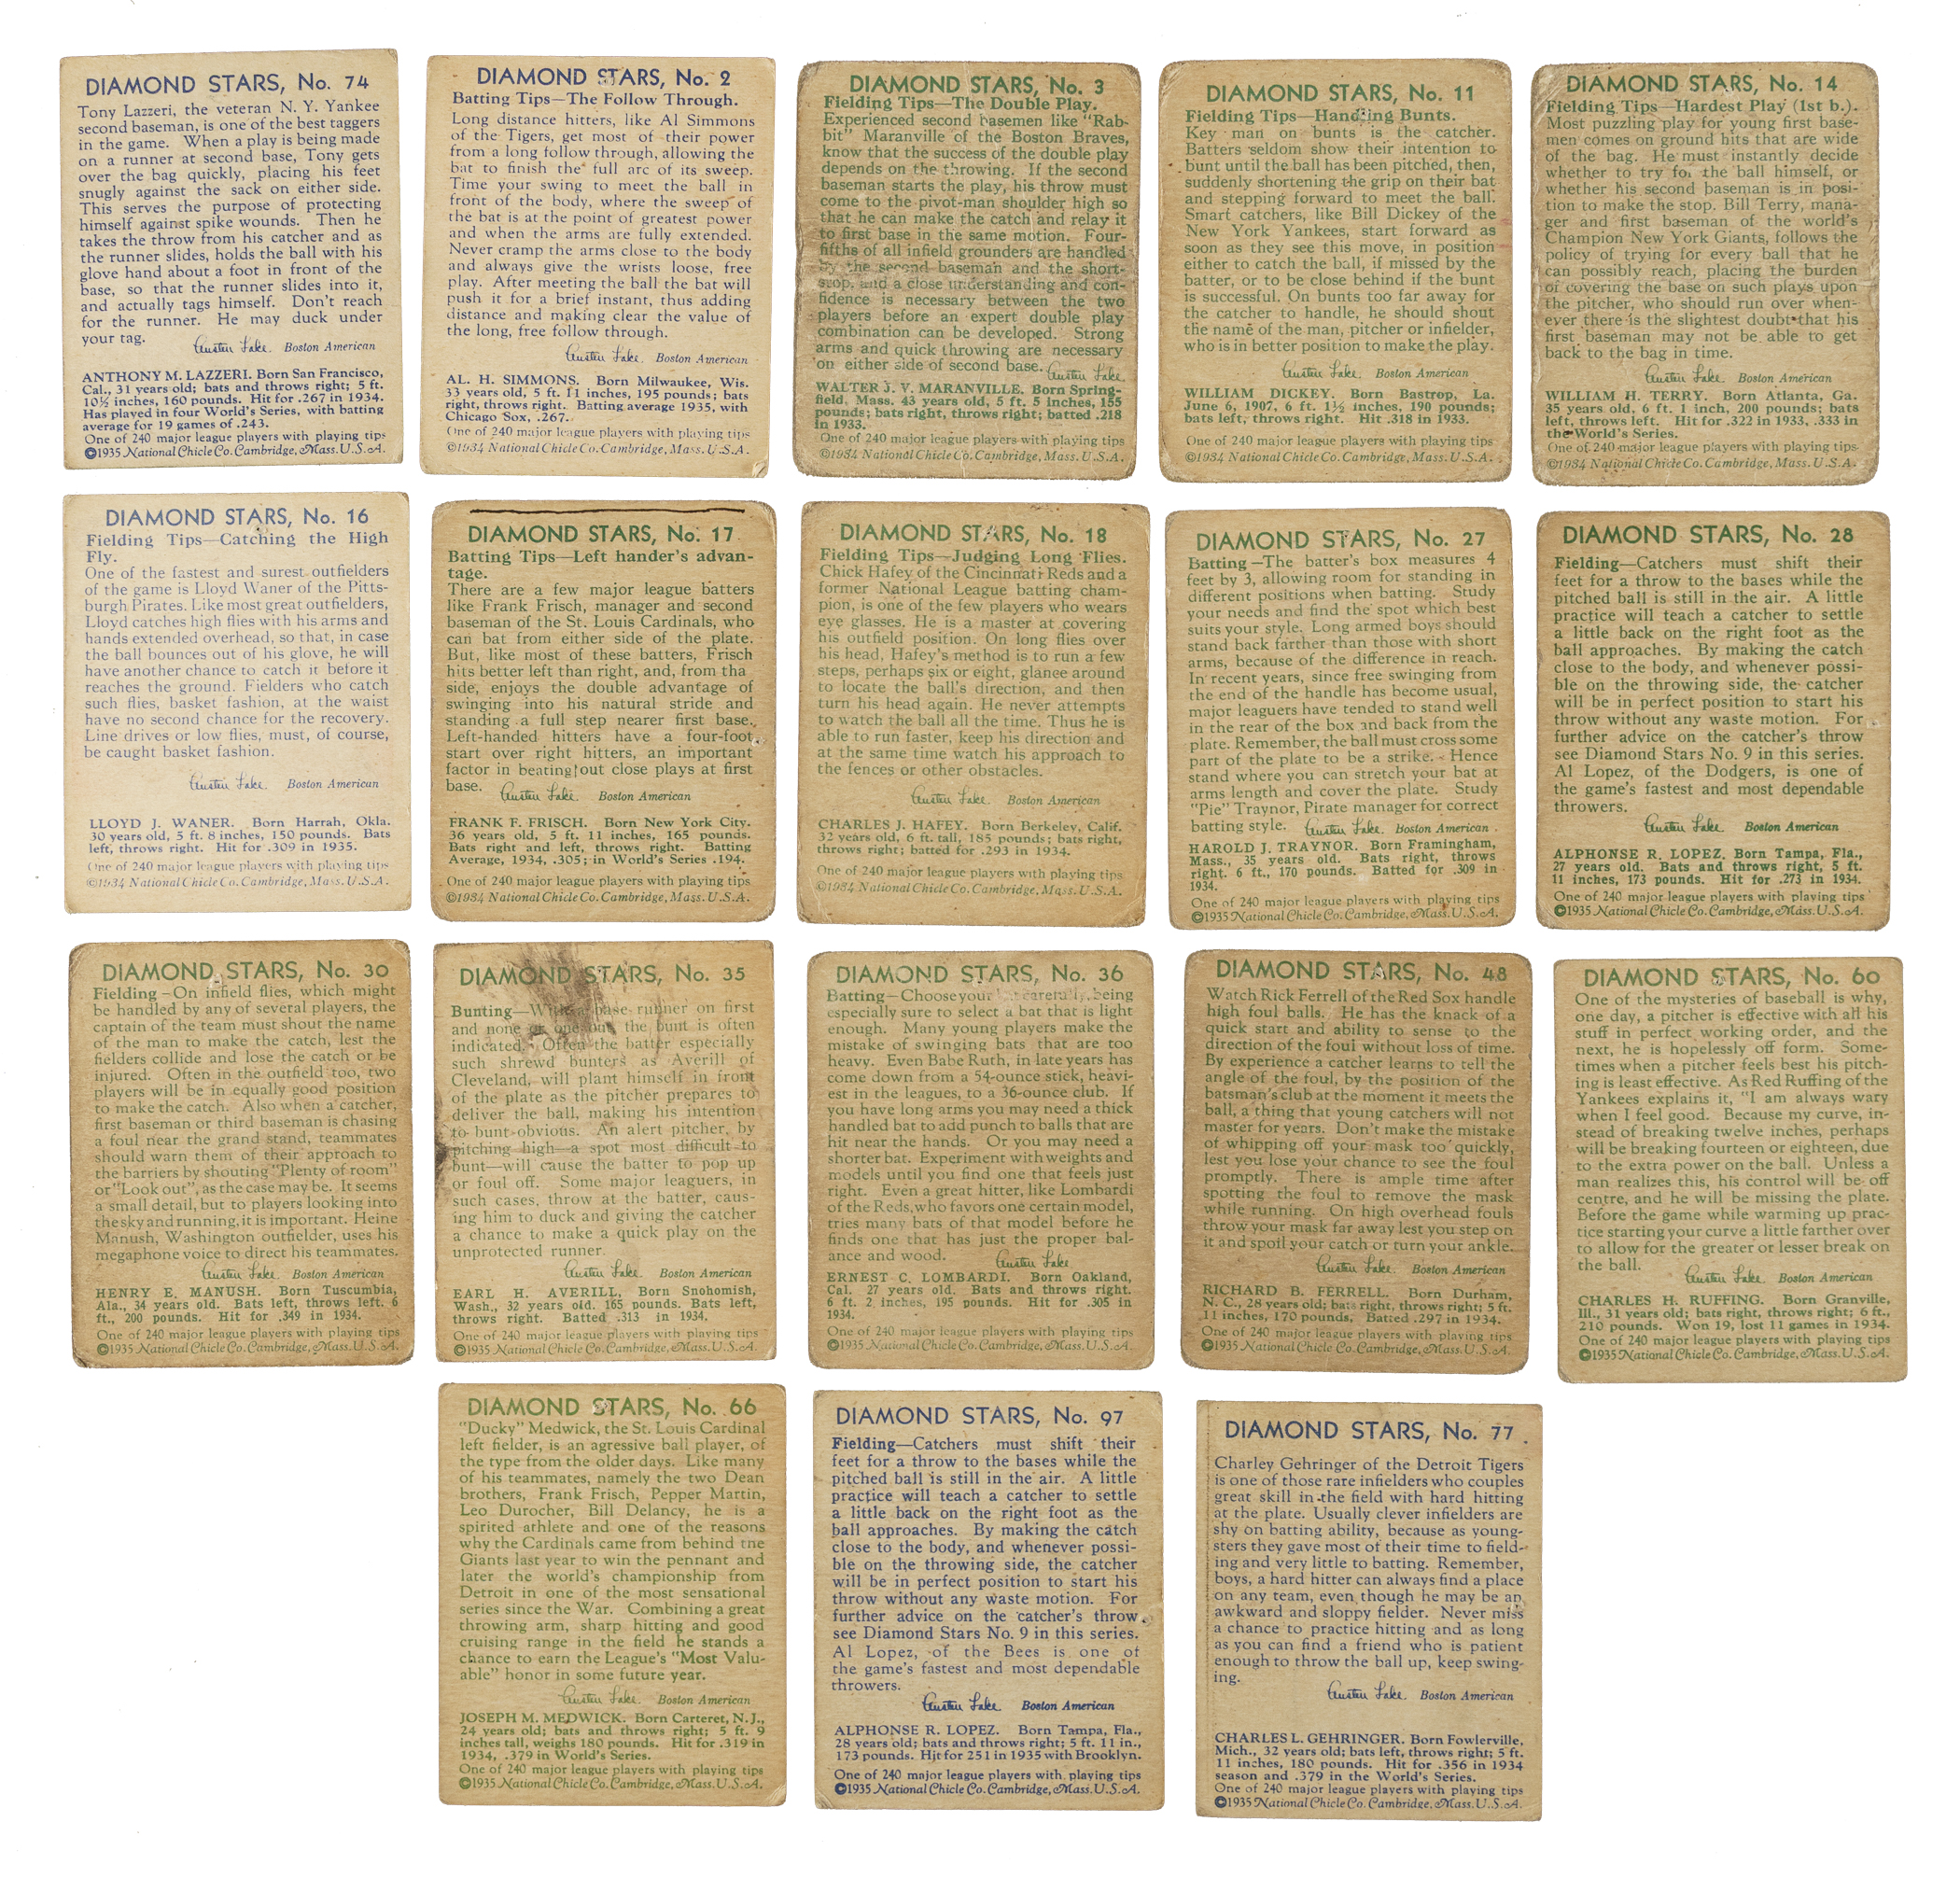 DIAMOND STARS, No. 74
Tony Lazzeri, the veteran N. Y. Yankee
second baseman, is one of the best taggers
in the game. When a play is being made
on a runner at second base, Tony gets
over the bag quickly, placing his feet
snugly against the sack on either side.
This serves the purpose of protecting
himself against spike wounds. Then he
takes the throw from his catcher and as
the runner slides, holds the ball with his
glove hand about a foot in front of the
base, so that the runner slides into it,
and actually tags himself. Don't reach
for the runner. He may duck under
your tag.
Austen Lake. Boston American
ANTHONY M. LAZZERI. Born San Francisco,
Cal., 31 years old; bats and throws right; 5 ft.
10½ inches, 160 pounds. Hit for .267 in 1934.
Has played in four World's Series, with batting
average for 19 games of .243.
One of 240 major league players with playing tips
©1935 National Chicle Co. Cambridge, Mass. U.S.A.
DIAMOND STARS, No. 2
Batting Tips—The Follow Through.
Long distance hitters, like Al Simmons
of the Tigers, get most of their power
from a long follow through, allowing the
bat to finish the full arc of its sweep.
Time your swing to meet the ball in
front of the body, where the sweep of
the bat is at the point of greatest power
and when the arms are fully extended.
Never cramp the arms close to the body
and always give the wrists loose, free
play. After meeting the ball the bat will
push it for a brief instant, thus adding
distance and making clear the value of
the long, free follow through.
Austen Lake. Boston American
AL. H. SIMMONS. Born Milwaukee, Wis.
33 years old, 5 ft. 11 inches, 195 pounds; bats
right, throws right. Batting average 1935, with
Chicago Sox, .267.
One of 240 major league players with playing tips
©1934 National Chicle Co. Cambridge, Mass. U.S.A.
DIAMOND STARS, No. 3
Fielding Tips—The Double Play.
Experienced second basemen like "Rab-
bit" Maranville of the Boston Braves,
know that the success of the double play
depends on the throwing. If the second
baseman starts the play, his throw must
come to the pivot-man shoulder high so
that he can make the catch and relay it
to first base in the same motion. Four-
fifths of all infield grounders are handled
by the second baseman and the short-
stop, and a close understanding and con-
fidence is necessary between the two
players before an expert double play
combination can be developed. Strong
arms and quick throwing are necessary
on either side of second base. Austen Lake.
WALTER J. V. MARANVILLE. Born Spring-
field, Mass. 43 years old, 5 ft. 5 inches, 155
pounds; bats right, throws right; batted .218
in 1933.
One of 240 major league players with playing tips
©1934 National Chicle Co. Cambridge, Mass. U.S.A.
DIAMOND STARS, No. 11
Fielding Tips—Handling Bunts.
Key man on bunts is the catcher.
Batters seldom show their intention to
bunt until the ball has been pitched, then,
suddenly shortening the grip on their bat
and stepping forward to meet the ball.
Smart catchers, like Bill Dickey of the
New York Yankees, start forward as
soon as they see this move, in position
either to catch the ball, if missed by the
batter, or to be close behind if the bunt
is successful. On bunts too far away for
the catcher to handle, he should shout
the name of the man, pitcher or infielder,
who is in better position to make the play.
Austen Lake. Boston American
WILLIAM DICKEY. Born Bastrop, La.
June 6, 1907, 6 ft. 1½ inches, 190 pounds;
bats left, throws right. Hit .318 in 1933.
One of 240 major league players with playing tips
©1934 National Chicle Co. Cambridge, Mass. U.S.A.
DIAMOND STARS, No. 14
Fielding Tips—Hardest Play (1st b.).
Most puzzling play for young first base-
men comes on ground hits that are wide
of the bag. He must instantly decide
whether to try for the ball himself, or
whether his second baseman is in posi-
tion to make the stop. Bill Terry, mana-
ger and first baseman of the world's
Champion New York Giants, follows the
policy of trying for every ball that he
can possibly reach, placing the burden
of covering the base on such plays upon
the pitcher, who should run over when-
ever there is the slightest doubt that his
first baseman may not be able to get
back to the bag in time.
Austen Lake. Boston American
WILLIAM H. TERRY. Born Atlanta, Ga.
35 years old, 6 ft. 1 inch, 200 pounds; bats
left, throws left. Hit for .322 in 1933, .333 in
the World's Series.
One of 240 major league players with playing tips
©1934 National Chicle Co. Cambridge, Mass. U.S.A.
DIAMOND STARS, No. 16
Fielding Tips—Catching the High
Fly.
One of the fastest and surest outfielders
of the game is Lloyd Waner of the Pitts-
burgh Pirates. Like most great outfielders,
Lloyd catches high flies with his arms and
hands extended overhead, so that, in case
the ball bounces out of his glove, he will
have another chance to catch it before it
reaches the ground. Fielders who catch
such flies, basket fashion, at the waist
have no second chance for the recovery.
Line drives or low flies, must, of course,
be caught basket fashion.
Austen Lake. Boston American
LLOYD J. WANER. Born Harrah, Okla.
30 years old, 5 ft. 8 inches, 150 pounds. Bats
left, throws right. Hit for .309 in 1935.
One of 240 major league players with playing tips
©1934 National Chicle Co. Cambridge, Mass. U.S.A.
DIAMOND STARS, No. 17
Batting Tips—Left hander's advan-
tage.
There are a few major league batters
like Frank Frisch, manager and second
baseman of the St. Louis Cardinals, who
can bat from either side of the plate.
But, like most of these batters, Frisch
hits better left than right, and, from tha
side, enjoys the double advantage of
swinging into his natural stride and
standing a full step nearer first base.
Left-handed hitters have a four-foot
start over right hitters, an important
factor in beating out close plays at first
base. Austen Lake. Boston American
FRANK F. FRISCH. Born New York City.
36 years old, 5 ft. 11 inches, 165 pounds.
Bats right and left, throws right. Batting
Average, 1934, .305; in World's Series .194.
One of 240 major league players with playing tips
©1934 National Chicle Co. Cambridge, Mass. U.S.A.
DIAMOND STARS, No. 18
Fielding Tips—Judging Long Flies.
Chick Hafey of the Cincinnati Reds and a
former National League batting cham-
pion, is one of the few players who wears
eye glasses. He is a master at covering
his outfield position. On long flies over
his head, Hafey's method is to run a few
steps, perhaps six or eight, glance around
to locate the ball's direction, and then
turn his head again. He never attempts
to watch the ball all the time. Thus he is
able to run faster, keep his direction and
at the same time watch his approach to
the fences or other obstacles.
Austen Lake. Boston American
CHARLES J. HAFEY. Born Berkeley, Calif.
32 years old, 6 ft. tall, 185 pounds; bats right,
throws right; batted for .293 in 1934.
One of 240 major league players with playing tips
©1934 National Chicle Co. Cambridge, Mass. U.S.A.
DIAMOND STARS, No. 27
Batting—The batter's box measures 4
feet by 3, allowing room for standing in
different positions when batting. Study
your needs and find the spot which best
suits your style. Long armed boys should
stand back farther than those with short
arms, because of the difference in reach.
In recent years, since free swinging from
the end of the handle has become usual,
major leaguers have tended to stand well
in the rear of the box and back from the
plate. Remember, the ball must cross some
part of the plate to be a strike. Hence
stand where you can stretch your bat at
arms length and cover the plate. Study
"Pie" Traynor, Pirate manager for correct
batting style. Austen Lake. Boston American.
HAROLD J. TRAYNOR. Born Framingham,
Mass., 35 years old. Bats right, throws
right. 6 ft., 170 pounds. Batted for .309 in
1934.
One of 240 major league players with playing tips
©1935 National Chicle Co. Cambridge, Mass. U.S.A.
DIAMOND STARS, No. 28
Fielding—Catchers must shift their
feet for a throw to the bases while the
pitched ball is still in the air. A little
practice will teach a catcher to settle
a little back on the right foot as the
ball approaches. By making the catch
close to the body, and whenever possi-
ble on the throwing side, the catcher
will be in perfect position to start his
throw without any waste motion. For
further advice on the catcher's throw
see Diamond Stars No. 9 in this series.
Al Lopez, of the Dodgers, is one of
the game's fastest and most dependable
throwers.
Austen Lake. Boston American
ALPHONSE R. LOPEZ. Born Tampa, Fla.,
27 years old. Bats and throws right, 5 ft.
11 inches, 173 pounds. Hit for .273 in 1934.
One of 240 major league players with playing tips
©1935 National Chicle Co. Cambridge, Mass. U.S.A.
DIAMOND STARS, No. 30
Fielding—On infield flies, which might
be handled by any of several players, the
captain of the team must shout the name
of the man to make the catch, lest the
fielders collide and lose the catch or be
injured. Often in the outfield too, two
players will be in equally good position
to make the catch. Also when a catcher,
first baseman or third baseman is chasing
a foul near the grand stand, teammates
should warn them of their approach to
the barriers by shouting "Plenty of room"
or "Look out", as the case may be. It seems
a small detail, but to players looking into
the sky and running, it is important. Heine
Manush, Washington outfielder, uses his
megaphone voice to direct his teammates.
Austen Lake. Boston American
HENRY E. MANUSH. Born Tuscumbia,
Ala., 34 years old. Bats left, throws left. 6
ft., 200 pounds. Hit for .349 in 1934.
One of 240 major league players with playing tips
©1935 National Chicle Co. Cambridge, Mass. U.S.A.
DIAMOND STARS, No. 35
Bunting—With a base runner on first
and none or one out, the bunt is often
indicated. Often the batter especially
such shrewd bunters as Averill of
Cleveland, will plant himself in front
of the plate as the pitcher prepares to
deliver the ball, making his intention
to bunt obvious. An alert pitcher, by
pitching high—a spot most difficult to
bunt—will cause the batter to pop up
or foul off. Some major leaguers, in
such cases, throw at the batter, caus-
ing him to duck and giving the catcher
a chance to make a quick play on the
unprotected runner.
Austen Lake. Boston American
EARL H. AVERILL, Born Snohomish,
Wash., 32 years old. 165 pounds. Bats left,
throws right. Batted .313 in 1934.
One of 240 major league players with playing tips
©1935 National Chicle Co. Cambridge, Mass. U.S.A.
DIAMOND STARS, No. 36
Batting—Choose your bat carefully, being
especially sure to select a bat that is light
enough. Many young players make the
mistake of swinging bats that are too
heavy. Even Babe Ruth, in late years has
come down from a 54-ounce stick, heavi-
est in the leagues, to a 36-ounce club. If
you have long arms you may need a thick
handled bat to add punch to balls that are
hit near the hands. Or you may need a
shorter bat. Experiment with weights and
models until you find one that feels just
right. Even a great hitter, like Lombardi
of the Reds, who favors one certain model,
tries many bats of that model before he
finds one that has just the proper bal-
ance and wood. Austen Lake
ERNEST C. LOMBARDI. Born Oakland,
Cal. 27 years old. Bats and throws right.
6 ft. 2 inches, 195 pounds. Hit for .305 in
1934.
One of 240 major league players with playing tips
©1935 National Chicle Co. Cambridge, Mass. U.S.A.
DIAMOND STARS, No. 48
Watch Rick Ferrell of the Red Sox handle
high foul balls. He has the knack of a
quick start and ability to sense to the
direction of the foul without loss of time.
By experience a catcher learns to tell the
angle of the foul, by the position of the
batsman's club at the moment it meets the
ball, a thing that young catchers will not
master for years. Don't make the mistake
of whipping off your mask too quickly,
lest you lose your chance to see the foul
promptly. There is ample time after
spotting the foul to remove the mask
while running. On high overhead fouls
throw your mask far away lest you step on
it and spoil your catch or turn your ankle.
Austen Lake. Boston American
RICHARD B. FERRELL. Born Durham,
N. C., 28 years old; bats right, throws right; 5 ft.
11 inches, 170 pounds. Batted .297 in 1934.
One of 240 major league players with playing tips
©1935 National Chicle Co. Cambridge, Mass. U.S.A.
DIAMOND STARS, No. 60
One of the mysteries of baseball is why,
one day, a pitcher is effective with all his
stuff in perfect working order, and the
next, he is hopelessly off form. Some-
times when a pitcher feels best his pitch-
ing is least effective. As Red Ruffing of the
Yankees explains it, "I am always wary
when I feel good. Because my curve, in-
stead of breaking twelve inches, perhaps
will be breaking fourteen or eighteen, due
to the extra power on the ball. Unless a
man realizes this, his control will be off
centre, and he will be missing the plate.
Before the game while warming up prac-
tice starting your curve a little farther over
to allow for the greater or lesser break on
the ball.
Austen Lake. Boston American
CHARLES H. RUFFING. Born Granville,
Ill., 31 years old; bats right, throws right; 6 ft.,
210 pounds. Won 19, lost 11 games in 1934.
One of 240 major league players with playing tips
©1935 National Chicle Co. Cambridge, Mass. U.S.A.
DIAMOND STARS, No. 66
"Ducky" Medwick, the St. Louis Cardinal
left fielder, is an agressive ball player, of
the type from the older days. Like many
of his teammates, namely the two Dean
brothers, Frank Frisch, Pepper Martin,
Leo Durocher, Bill Delancy, he is a
spirited athlete and one of the reasons
why the Cardinals came from behind the
Giants last year to win the pennant and
later the world's championship from
Detroit in one of the most sensational
series since the War. Combining a great
throwing arm, sharp hitting and good
cruising range in the field he stands a
chance to earn the League's "Most Valu-
able" honor in some future year.
Austen Lake. Boston American
JOSEPH M. MEDWICK. Born Carteret, N.J.,
24 years old; bats and throws right; 5 ft. 9
inches tall, weighs 180 pounds. Hit for .319 in
1934, .379 in World's Series.
One of 240 major league players with playing tips
©1935 National Chicle Co. Cambridge, Mass. U.S.A.
DIAMOND STARS, No. 97
Fielding—Catchers must shift their
feet for a throw to the bases while the
pitched ball is still in the air. A little
practice will teach a catcher to settle
a little back on the right foot as the
ball approaches. By making the catch
close to the body, and whenever possi-
ble on the throwing side, the catcher
will be in perfect position to start his
throw without any waste motion. For
further advice on the catcher's throw
see Diamond Stars No. 9 in this series.
Al Lopez, of the Bees is one of
the game's fastest and most dependable
throwers.
Austen Lake. Boston American
ALPHONSE R. LOPEZ. Born Tampa, Fla.,
28 years old; bats and throws right; 5 ft. 11 in.,
173 pounds. Hit for 251 in 1935 with Brooklyn.
One of 240 major league players with playing tips
©1935 National Chicle Co. Cambridge, Mass. U.S.A.
DIAMOND STARS, No. 77
Charley Gehringer of the Detroit Tigers
is one of those rare infielders who couples
great skill in the field with hard hitting
at the plate. Usually clever infielders are
shy on batting ability, because as young-
sters they gave most of their time to field-
ing and very little to batting. Remember,
boys, a hard hitter can always find a place
on any team, even though he may be an
awkward and sloppy fielder. Never miss
a chance to practice hitting and as long
as you can find a friend who is patient
enough to throw the ball up, keep swing-
ing.
Austen Lake. Boston American
CHARLES L. GEHRINGER. Born Fowlerville,
Mich., 32 years old; bats left, throws right; 5 ft.
11 inches, 180 pounds. Hit for .356 in 1934
season and .379 in the World's Series.
One of 240 major league players with playing tips
©1935 National Chicle Co. Cambridge, Mass. U.S.A.